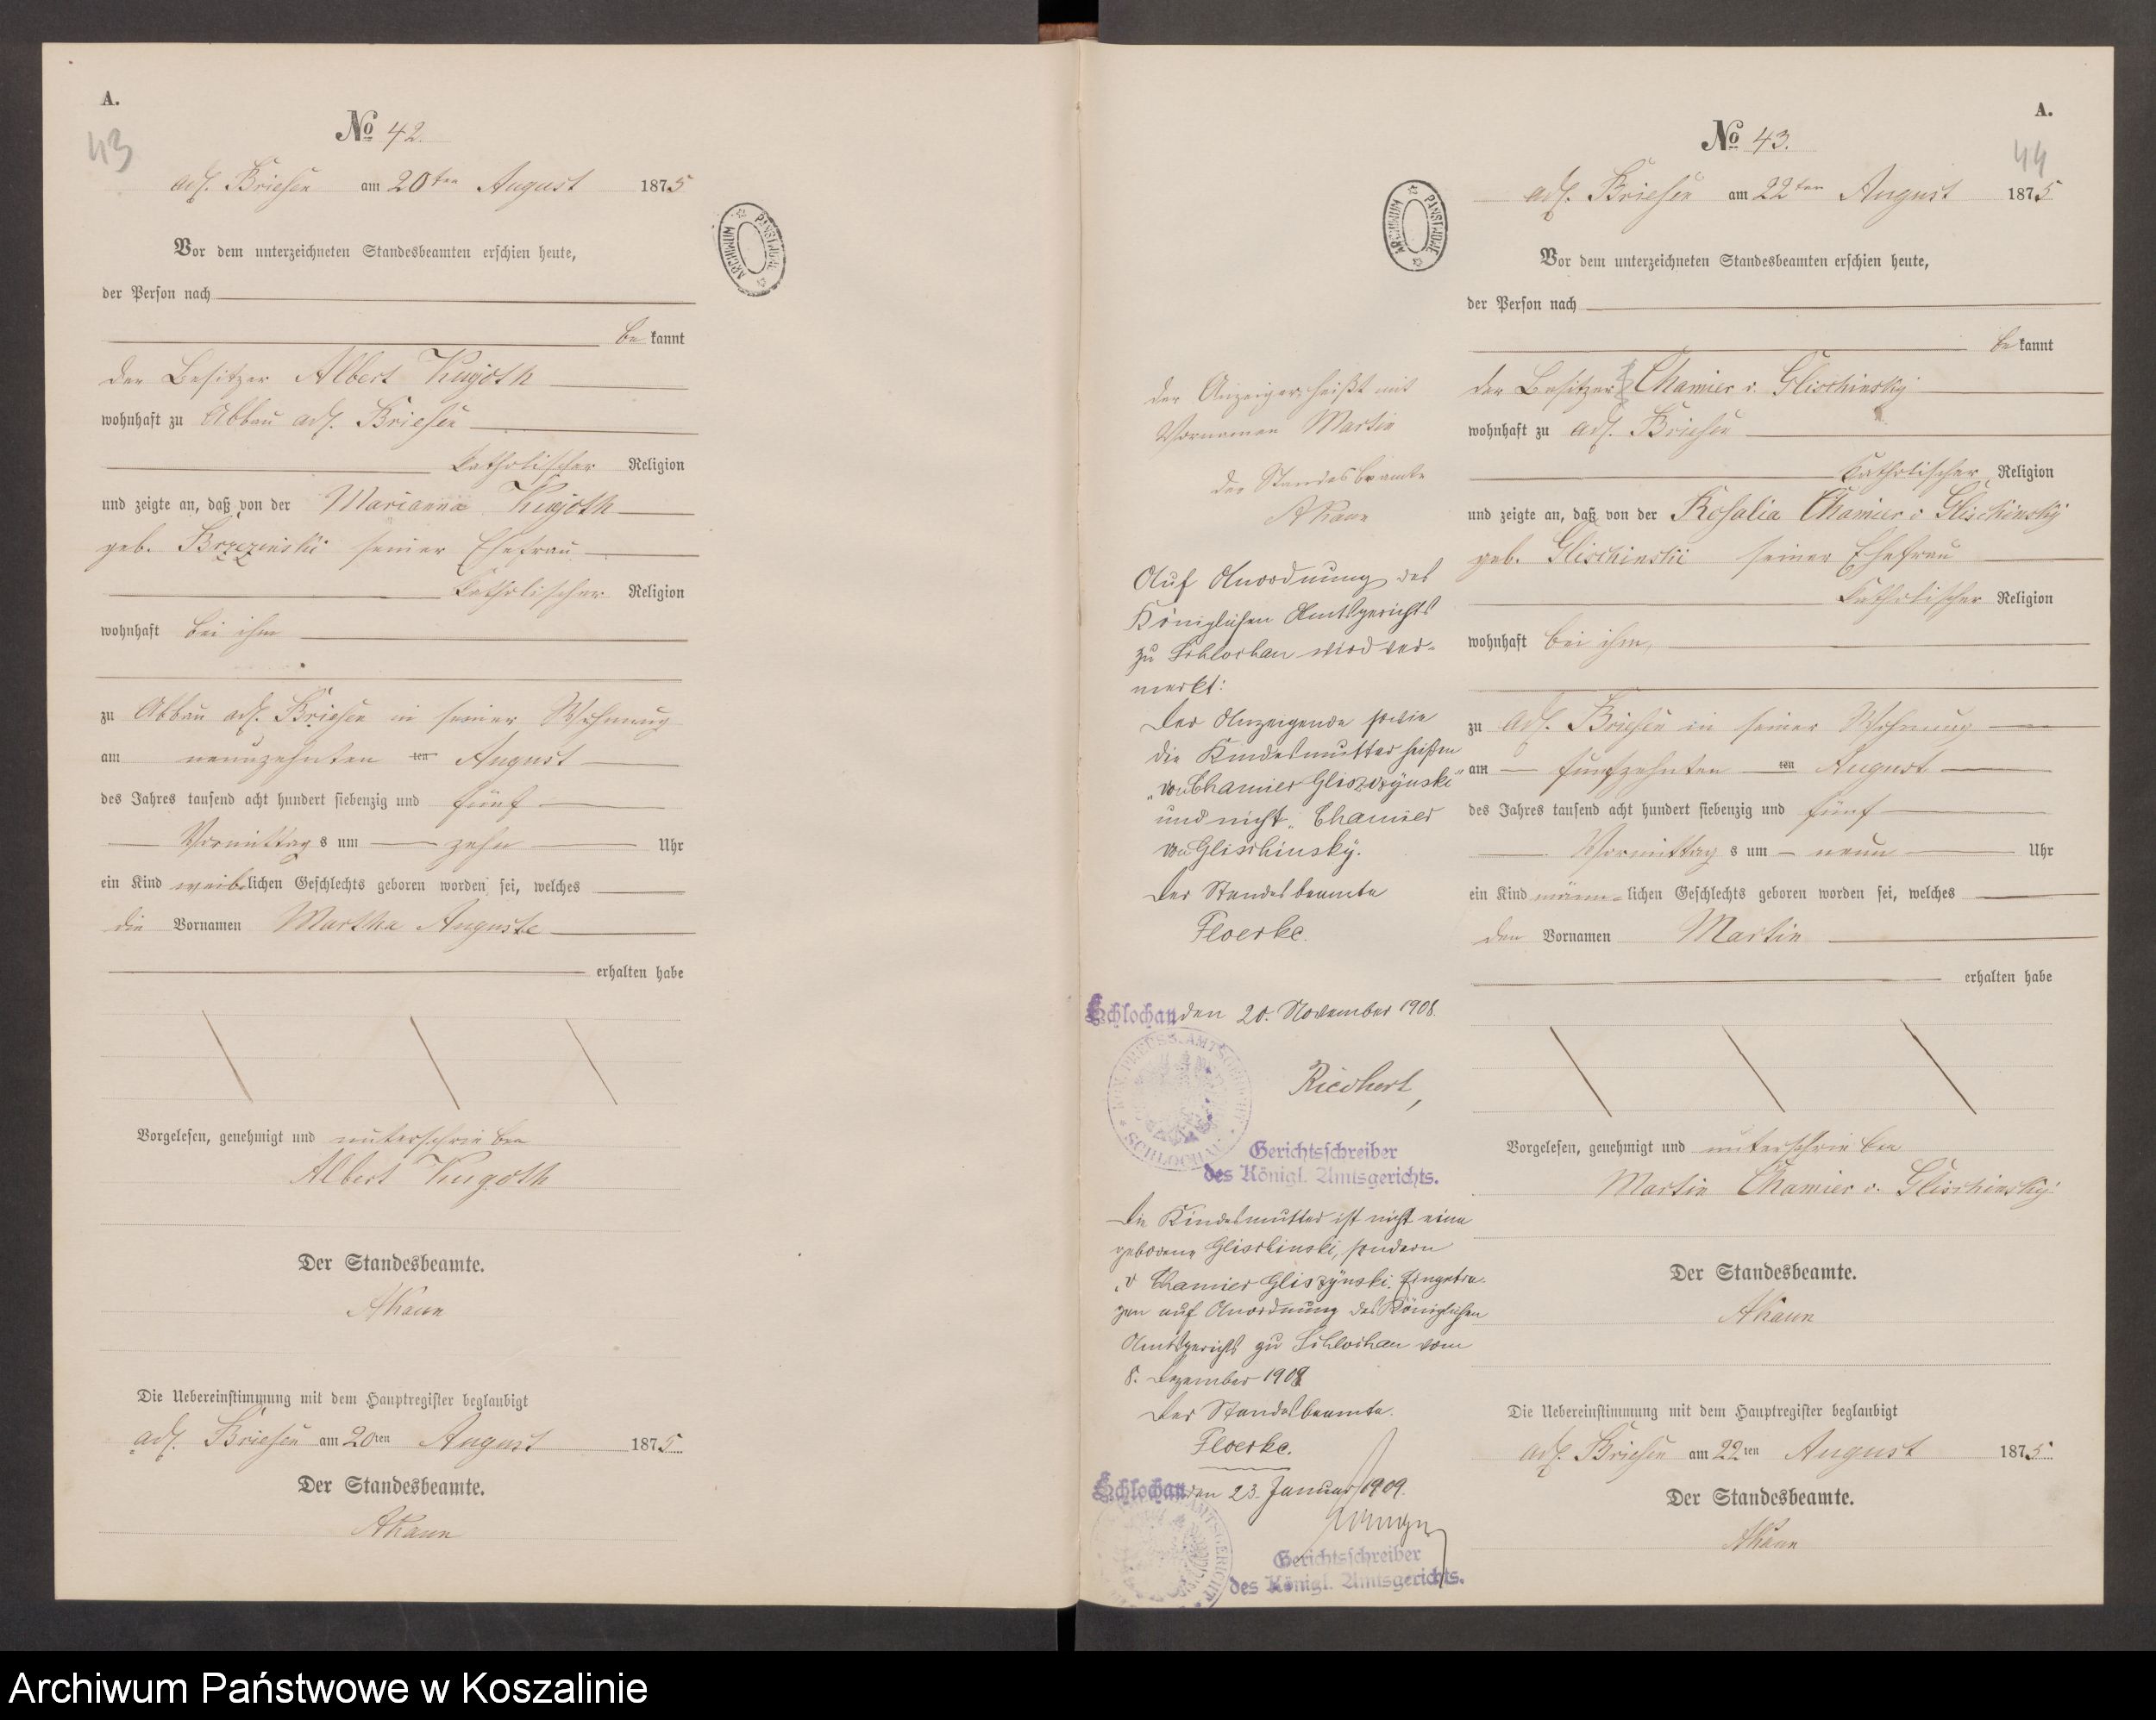 A.
43
No 42.
adl. Briesen am 20ten August 1875
Vor dem unterzeichneten Standesbeamten erschien heute,
der Person nach
be kannt
der Besitzer Albert Kujoth
wohnhaft zu Abbau adl. Briesen
katholischer Religion
und zeigte an, daß von der Marianna Kujoth
geb. Brzezinski seiner Ehefrau
katholischer Religion
wohnhaft bei ihm
zu Abbau adl. Briesen in seiner Wohnung
am neunzehnten ten August
des Jahres tausend acht hundert siebenzig und fünf
Vormittag s um zehn Uhr
ein Kind weiblichen Geschlechts geboren worden sei, welches
die Vornamen Martha Auguste
erhalten habe
Vorgelesen, genehmigt und unterschrieben
Albert Kugoth
Der Standesbeamte.
AKaun
Die Uebereinstimmung mit dem Hauptregister beglaubigt
adl. Briesen am 20ten August 1875.
Der Standesbeamte.
AKaun
ARCHIWUM PAŃSTWOWE
A.
44
No 43.
adl. Briesen am 22ten August 1875
ARCHIWUM PAŃSTWOWE
Vor dem unterzeichneten Standesbeamten erschien heute,
der Person nach
be kannt
der Besitzer Chamier v. Glischinsky
wohnhaft zu adl. Briesen
katholischer Religion
und zeigte an, daß von der Rosalia Chamier v Glischinsky
geb. Glischinski seiner Ehefrau
katholischer Religion
wohnhaft bei ihm,
zu adl. Briesen in seiner Wohnung
am fünfzehnten ten August
des Jahres tausend acht hundert siebenzig und fünf
Vormittag s um neun Uhr
ein Kind männlichen Geschlechts geboren worden sei, welches
den Vornamen Martin
erhalten habe
Vorgelesen, genehmigt und unterschrieben
Martin Chamier v. Glischinsky
Der Standesbeamte.
AKaun
Die Uebereinstimmung mit dem Hauptregister beglaubigt
adl. Briesen am 22ten August 1875.
Der Standesbeamte.
AKaun
der Anzeiger heißt mit
Vornamen Martin
der Standesbeamte
AKaun
Auf Anordnung des
Königlichen Amtsgerichts
zu Schlochau wird ver-
merkt:
Der Anzeigende sowie
die Kindesmutter heißen
„von Chamier Gliszczynski"
und nicht „Chamier
von Glischinsky.
Der Standesbeamte
Floerke.
Schlochau den 20. November 1908.
KÖN. PREUSS. AMTSGERICHT SCHLOCHAU
Riedhert,
Gerichtsschreiber
des Königl. Amtsgerichts.
Die Kindesmutter ist nicht eine
geborene Glischinski, sondern
„v Chamier Gliszynski. Eingetra-
gen auf Anordnung des Königlichen
Amtsgerichts zu Schlochau vom
8. Dezember 1908
Der Standesbeamte.
Floerke.
Schlochau den 23. Januar 1909.
AMTSGERICHT
Gerichtsschreiber
des Königl. Amtsgerichts.
Archiwum Państwowe w Koszalinie